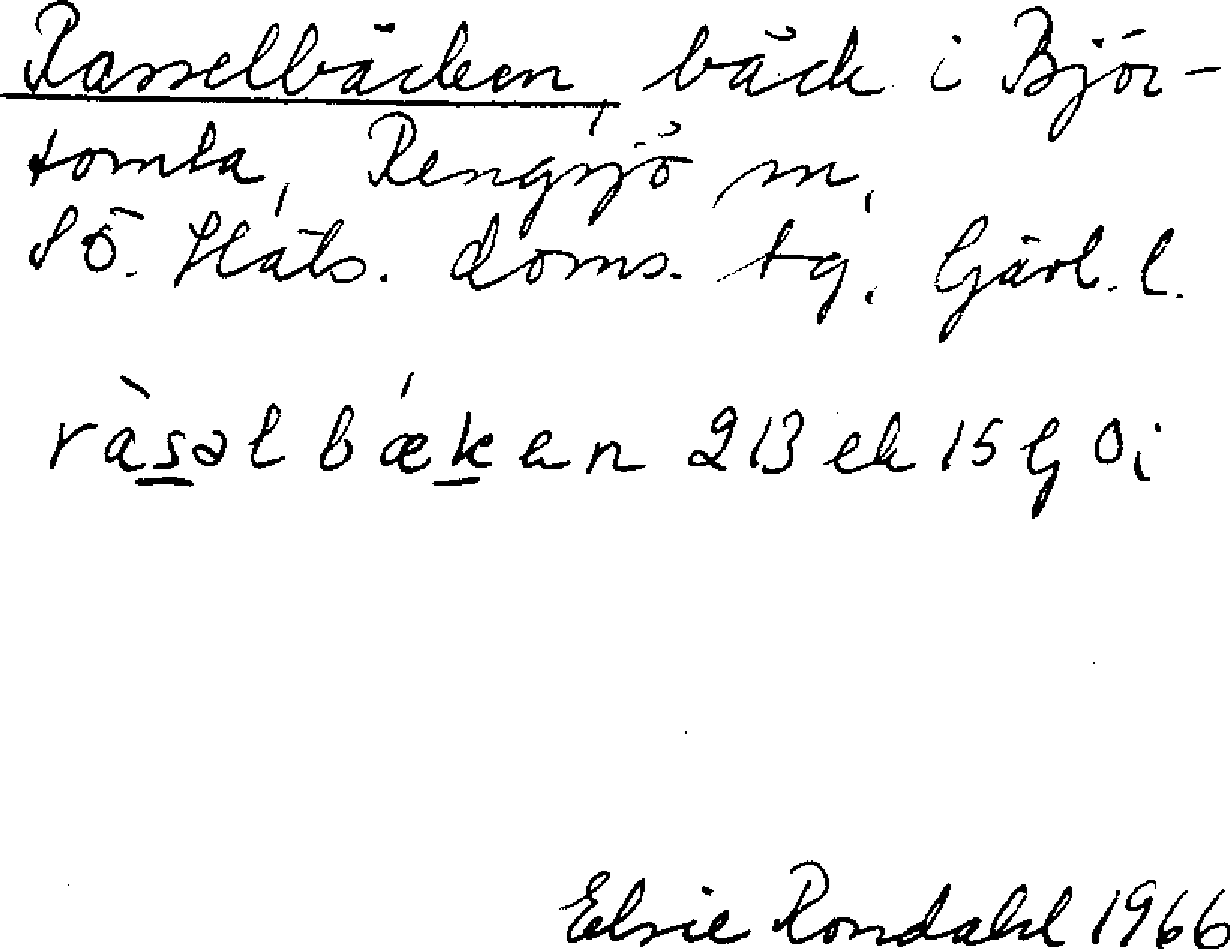 Rasselbäcken, bäck i Björ-
tomta, Rengsjö sn,
SÖ. Häls. doms. tg, Gävl. l.
ràsəl bǽken 213 ek 15 G Oi
Elsie Rondahl 1966